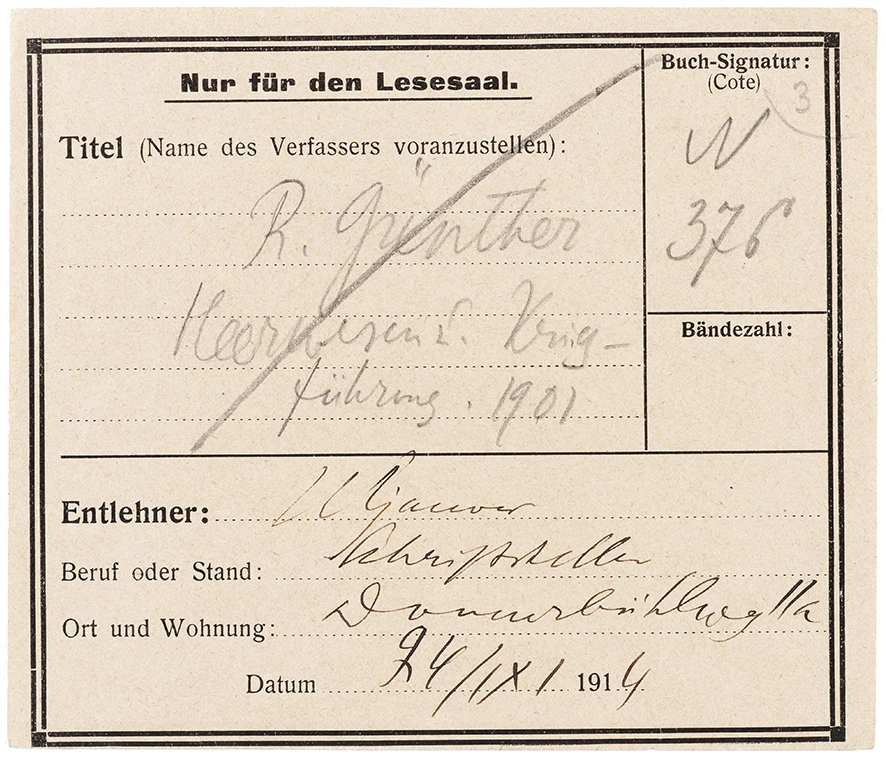 Nur für den Lesesaal.
Buch-Signatur:
(Cote)
3
W
376
Titel (Name des Verfassers voranzustellen):
R. Günther
Heerwesen u. Krieg-
führung. 1901
Bändezahl:
Entlehner: Uljanow
Beruf oder Stand: Schriftsteller
Ort und Wohnung: Donnerbühlweg 11a
Datum 24/IX 1914